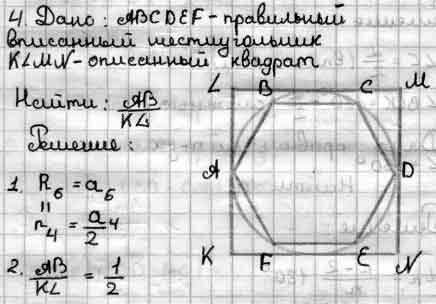 4. Дано: ABCDEF - правильный
вписанный шестиугольник
KLMN - описанный квадрат
Найти: AB/KL
Решение:
1. R₆ = a₆
"
r₄ = a/2 4
2. AB/KL = 1/2
L B C M
A D
K F E N